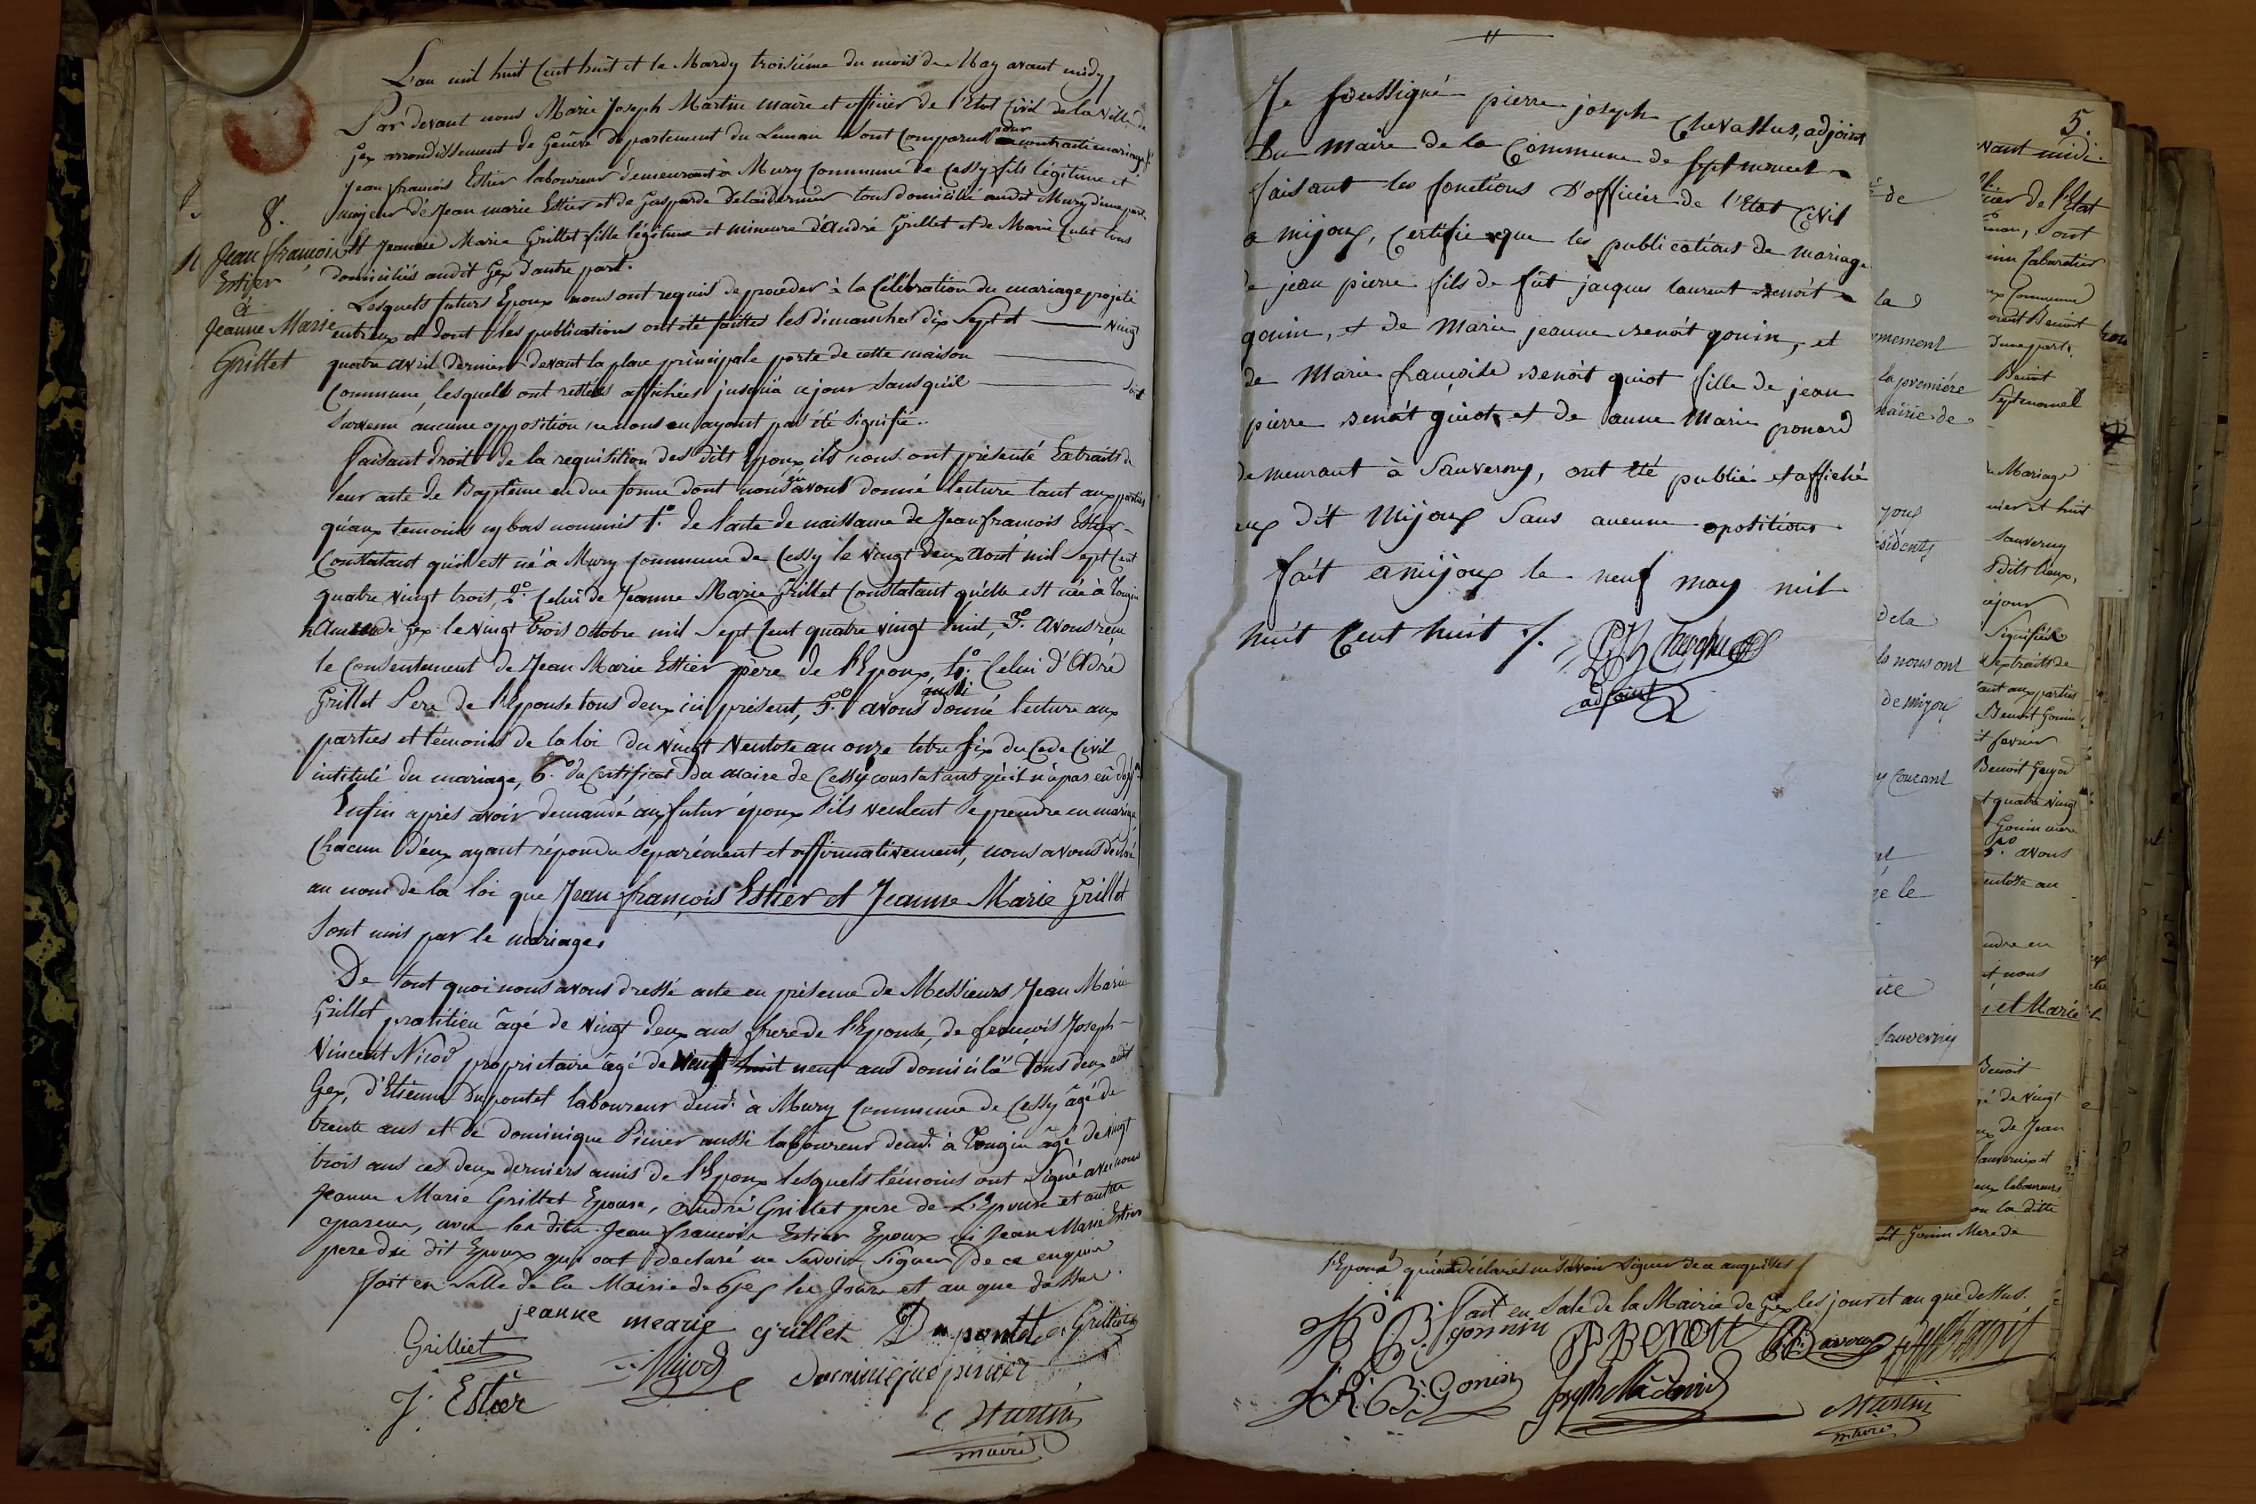 L'an mil huit Cent huit et le Mardy troisième du mois de May avant midy
Par devant nous Marie Joseph Martin maire et officier de l'Etat Civil de la Ville de
Gex arrondissement de Genève département du Léman sont Comparus pour contracté mariage
Jean françois Estier laboureur demeurant à Mury Commune de Cessy fils légitime et
majeur de Jean marie Estier et de Gasparde Delaidernier tous domicilié audit Mury d'une part
8.
Jean françois
Estier
et
Jeanne Marie
Grillet
Et Jeanne Marie Grillet fille légitime et mineure d'andré Grillet et de Marie tous
domiciliés audit Gex d'autre part.
Lesquels futurs Epoux nous ont requis de proceder à la Célébration du mariage projeté
entreux et dont les publications ont été faittes les dimanches dix Sept et vingt
quatre avril dernier devant la place principale porte de cette maison
Commune, lesquels ont restées affichées jusqu'à ce jour sans qu'il soit
Survenu aucune opposition, ne nous en ayant pas été signifié.
Faisant droit de la requisition des dits Epoux ils nous ont présenté Extraits de
leur acte de Baptême en due forme dont nous avons donné lecture tant aux parties
qu'aux temoins cy bas nommés 1.º de l'acte de naissance de Jean francois Estier
Constatant qu'il est né à Mury Commune de Cessy le vingt deux aout mil Sept Cent
quatre vingt trois, 2.º Celui de Jeanne Marie Grillet Constatant qu'elle est née à Tougin
de Gex le vingt trois octobre mil Sept Cent quatre vingt huit, 3.º avons reçu
le Consentement de Jean Marie Estier père de l'Epoux, 4.º Celui d'Adré
Grillet Pere de l'Epouse tous deux ici présent, 5.º avons aussi donné lecture aux
parties et témoins de la loi du vingt Ventose an onze titre six du Code Civil
intitulé du mariage, 6.º du Certificat du maire de Cessy constatant qu'il n'a pas eû d'opp.on
Enfin après avoir demandé aux futur époux s'ils veulent se prendre en mariage
Chacun d'eux ayant répondu Separément et affirmativement, nous avons déclaré
au nom de la loi que Jean françois Estier et Jeanne Marie Grillet
Sont unis par le mariage.
De tout quoi nous avons dressé acte en présence de Messieurs Jean Marie
Grillet praticien âgé de vingt deux ans frere de l'Epouse, de françois Joseph
Vincent Nicod proprietaire âgé de vingt huit neuf ans domicilié tous deux audit
Gex, d'Etienne Dupontet laboureur demt. à Mury Commune de Cessy âgé de
trente ans et de dominique Pinier aussi laboureur demt. à Tougin âgé de vingt
trois ans ces deux derniers amis de l'Epoux lesquels témoins ont signé avec nous
Jeanne Marie Grillet Epouse, andré Grillet pere de L'Epouse et autre
parens, avec les dits Jean francois Estier Epoux et Jean Marie Estier
pere du dit Epoux qui ont declaré ne savoir signer de ce enquis
Fait en Salle de la Mairie de Gex les Jour et an que dessus.
jeanne mearie grillet Dupontet Grilliet
Grilliet Nicod dominique pinier
J. Estier
Martin
maire
Je soussigné pierre joseph Chevassus, adjoint
Du maire de la Commune de Septmoncel
faisant les fonctions d'officier de l'Etat Civil
a mijoux, Certifie que les publications de mariage
de jean pierre fils de fût jacques laurent Benoit
gonin, et de Marie jeanne Benoit gonin, et
de Marie francoise Benoit guiot fille de jean
pierre Benoit guiot et de anne Marie ponard
demeurant à Sauverny, ont été publié et affiché
au dit Mijoux Sans aucune opositions
fait a mijoux le neuf may mil
huit Cent huit ./.
adjoint
5.
avant midi.
officier de l'Etat
sont
Cabaretier
Commune
Benoit
d'une part,
Benoit
Septmoncel
Mariage
et huit
Sauverny
dits lieux,
ce jour
Signifiée
extraits de
tant aux parties
Benoit Gonin
fevrier
Benoit
quatre vingt
Gonin mere
5.º avons
ventose an
prendre en
et nous
et Marie
Benoit
âgé de vingt
de Jean
Sauverny et
laboureurs
la ditte
Gonin Mere de
de
la
la première
mairie de
de la
ils nous ont
de mijoux
Courant
le
Sauverny
l'Epoux qui ont déclarés ne savoir signer de ce enquises
Fait en Sale de la Mairie de Gex les jour et an que dessus.
gonnin JP BENOIT
Gonin
Martin
maire